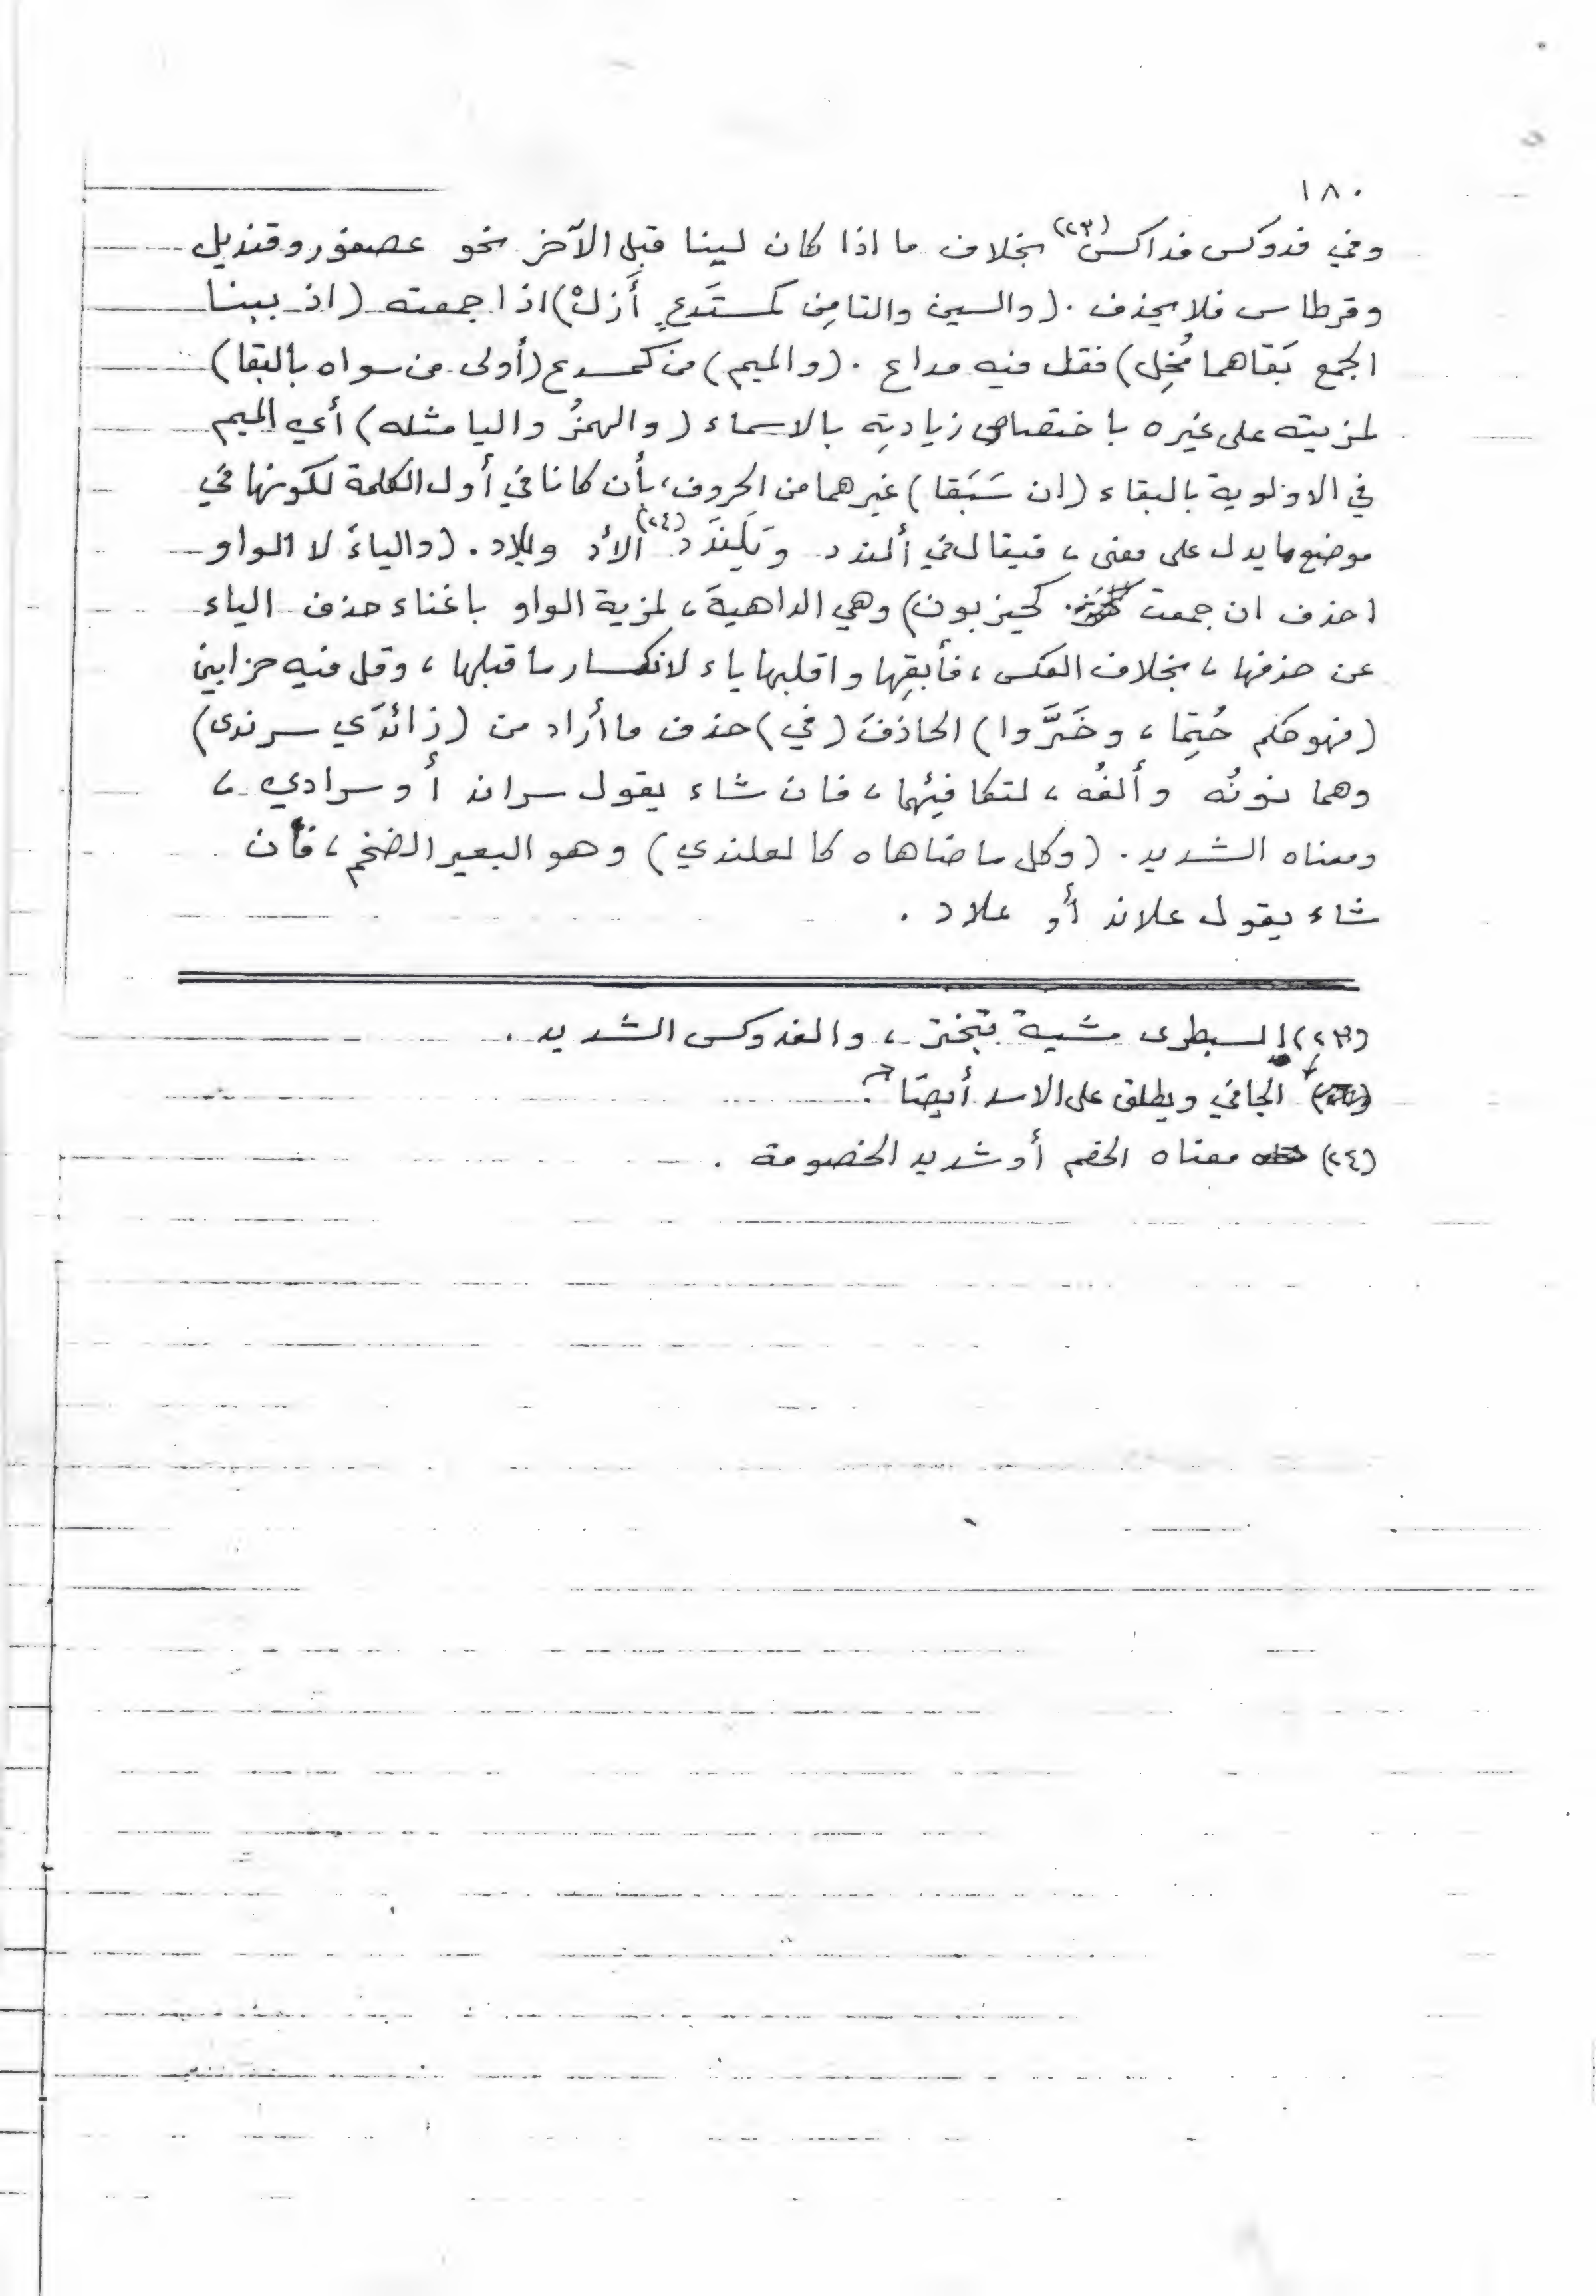 ١٨٠
وفي فدوكس فداكس(٢٣) بخلاف ما اذا كان لينا قبل الآخر نحو عصفور وقنديل
وقرطاس فلا يحذف . (والسين والتا مِن كمستَدعٍ أَزلْ) اذا جمعته (اذ ببنا
الجمع بَقاهما مُخِل) فقل فيه مداع . (والميم) من كمسدع (أولى من سواه بالبقا)
لمزيته على غيره باختصاص زيادتِه بالاسماء (والهمزُ واليا مثله) أي الميم
في الاولوية بالبقاء (ان سَبَقا) غيرهما من الحروف، بأن كانا في أول الكلمة لكونها في
موضع ما يدل على معنى ، فيقال في ألندد ويَلَندَد(٢٤) الأد ويلاد . (والياءَ لا الواو
احذف ان جمعت كحيزبون) وهي الداهيةَ ، لمزية الواو باغناء حذف الياء
عن حذفها ، بخلاف العكس ، فأبقِها واقلبها ياء لانكسار ما قبلها ، وقل فيه حزابين
(فهو حكم حُتِما ، وخَيَّروا) الحاذفَ (في) حذف ما أراد من (زائدَي سرندى)
وهما نونُه وألفُه ، لتكافيئهما ، فان شاء يقول سراند أو سرادي ،
ومعناه الشديد . (وكل ما ضاهاه كالعلندي) وهو البعير الضخم ، فأن
شاء يقول علاند أو علاد .
(٢٣) السبطرى مشية تبختر ، والفدوكس الشديد .
الجافي ويطلق على الاسد أيضًا .
(٢٤) معناه الخصم أو شديد الخصومة .